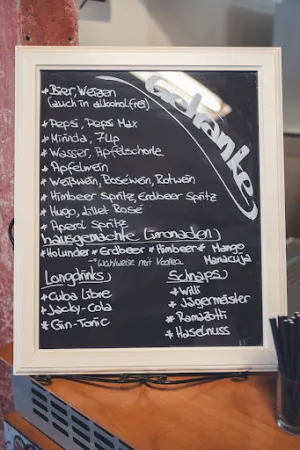 Getränke
* Bier, Weizen
(auch in alkoholfrei)
* Pepsi, Pepsi Max
* Mirinda, 7Up
* Wasser, Apfelschorle
* Apfelwein
* Weißwein, Roséwein, Rotwein
* Himbeer Spritz, Erdbeer Spritz
* Hugo, Lillet Rosé
* Aperol Spritz
hausgemachte Limonaden
* Holunder * Erdbeer * Himbeer * Mango Maracuja
wahlweise mit Vodka
Longdrinks
* Cuba Libre
* Jacky-Cola
* Gin-Tonic
Schnaps
* Willi
* Jägermeister
* Ramazotti
* Haselnuss